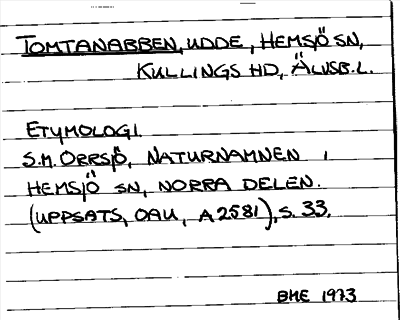 TOMTANABBEN, UDDE, HEMSJÖ SN,
KULLINGS HD, ÄLVSB. L.
ETYMOLOGI
S.M. ORRSJÖ, NATURNAMNEN I
HEMSJÖ SN, NORRA DELEN.
(UPPSATS, OAU, A 2581), S. 33.
BME 1973